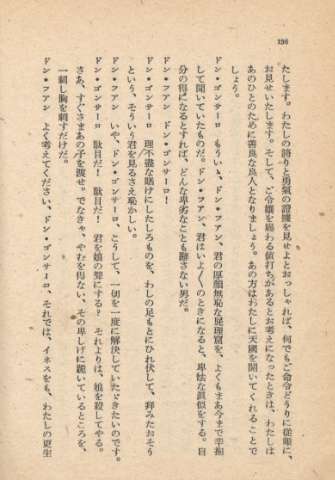 196
たします。わたしの誇りと勇氣の證據を見せよとおつしゃれば、何でもご命令どうりに從順に、
お見せいたします。そして、ご令孃を賜わる値打ちがあるとお考えになつたときは、わたしは
あのひとのために善良な良人となりましょう。あの方はわたしに天國を開いてくれることで
しょう。
ドン・ゴンサーロ　もういゝ、ドン・フアン、君の厚顏無恥な屁理窟を、よくもまあ今まで辛抱
して聞いていたものだ。ドン・フアン、君はいよ〳〵のときになると、卑怯な眞似をする。自
分の得になるとすれば、どんな卑劣なことも辭さない男だ。
ドン・フアン　ドン・ゴンサーロ！
ドン・ゴンサーロ　理不盡な賭けにしたしろものを、わしの足もとにひれ伏して、拜みたおそう
という、そういう君を見るさえ恥かしい。
ドン・フアン　いや、ドン・ゴンサーロ、こうして、一切を一度に解決していたゞきたいのです。
ドン・ゴンサーロ　駄目だ！　駄目だ！　君を娘の聟にする？　それよりは、娘を殺してやる。
さあ、すぐさまあの子を渡せ。でなきゃ、やむを得ない、その卑しげに跪いているところを、
一刺し胸を刺すだけだ。
ドン・フアン　よく考えてください、ドン・ゴンサーロ、それでは、イネスをも、わたしの更生